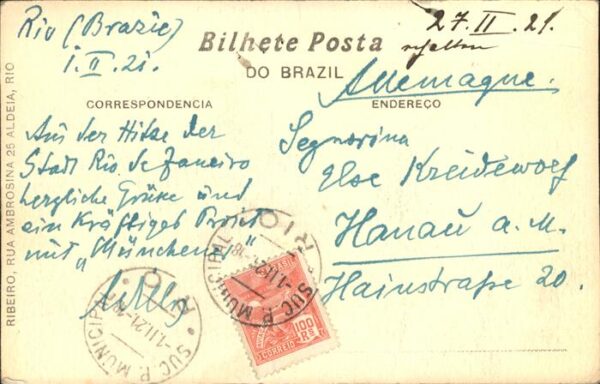 Rio (Brazil)
1.II.21.
27.II.21.
erhalten
Bilhete Posta
DO BRAZIL
Allemagne.
CORRESPONDENCIA
ENDEREÇO
Aus der Hitze der
Stadt Rio de Janeiro
herzliche Grüße und
ein kräftiges Prosit
mit „Münchener"
Segnorina
Else Kreidewolf
Hanau a. M.
Hainstrasse 20.
RIBEIRO, RUA AMBROSINA 25 ALDEIA, RIO
RIO
SUC. P. MUNICIPAL
1.II.21
100
RS
CORREIO
RIO
SUC. P. MUNICIPAL
1.II.21